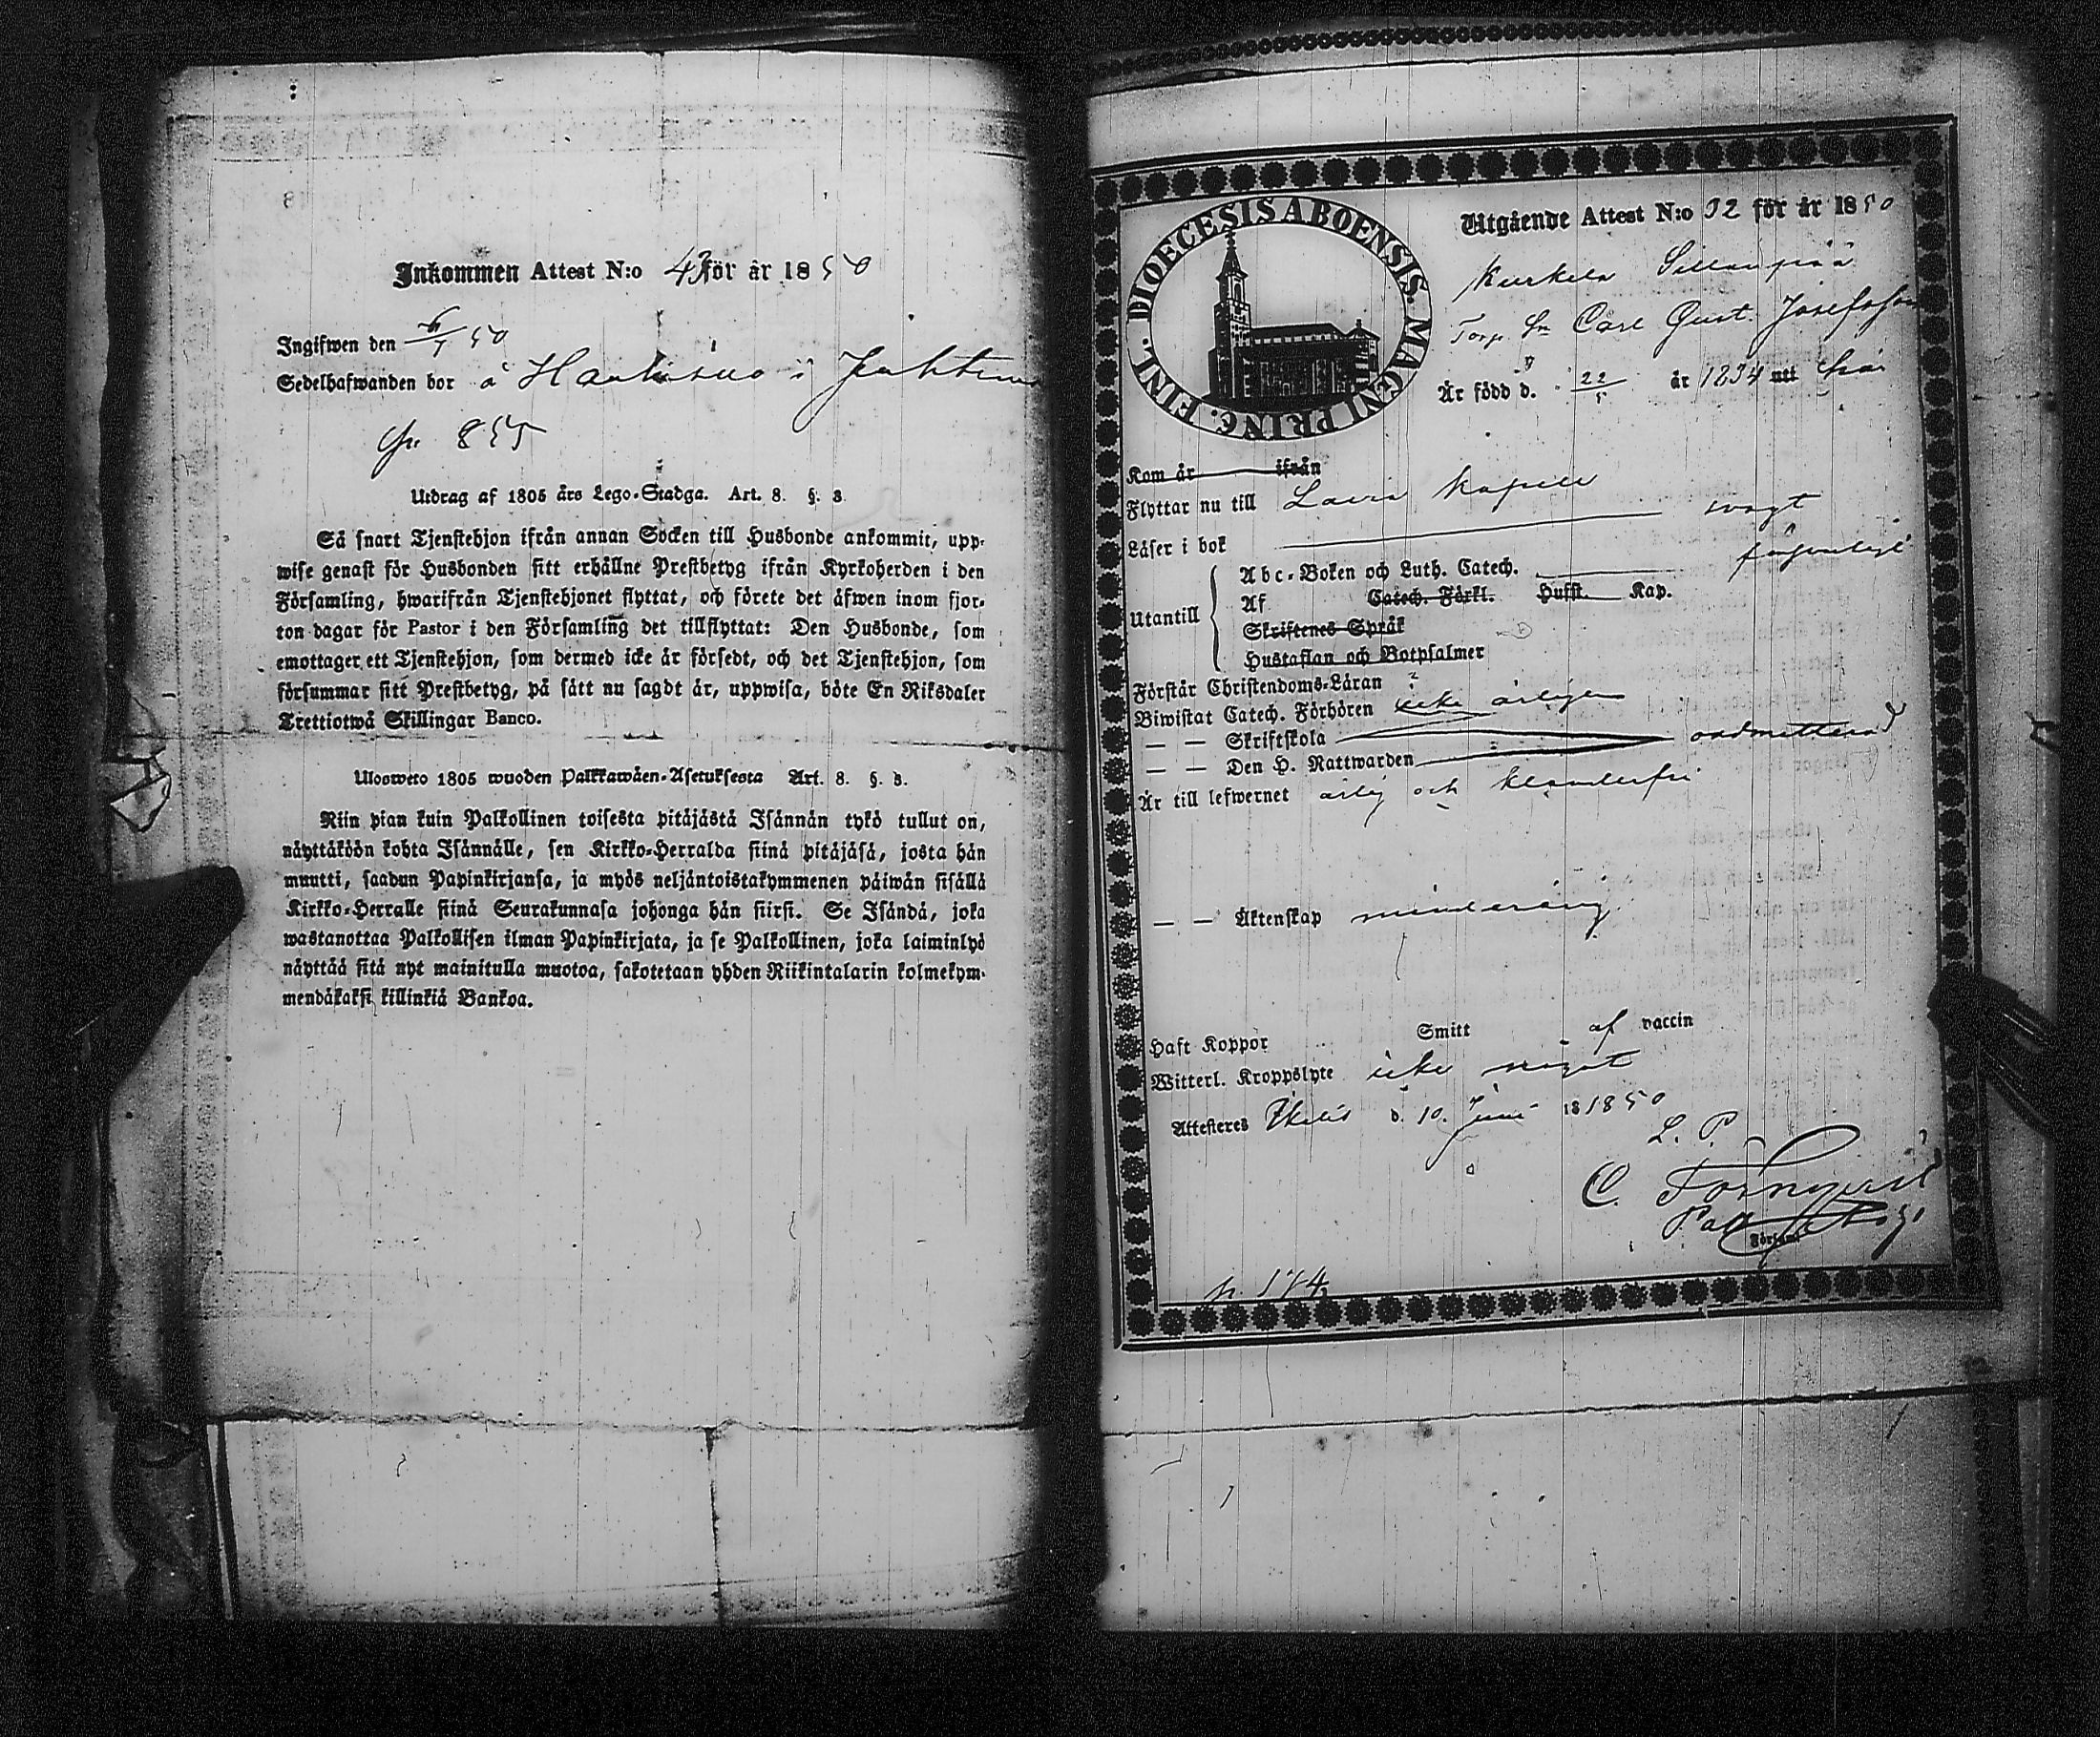 Inkommen Attest N:o 43 för år 1850
Ingifwen den 6/7 50
Sedelhafwanden bor å Hankisuo i
p. 855
Utdrag af 1805 års Lego-Stadga. Art. 8. §. 8.
Så snart Tjenstehjon ifrån annan Socken till Husbonde ankommit, upp-
wise genast för Husbonden sitt erhållne Prestbetyg ifrån Kyrkoherden i den
Församling, hwarifrån Tjenstehjonet flyttat, och förete det äfwen inom fjor-
ton dagar för Pastor i den Församling det tillflyttat: Den Husbonde, som
emottager ett Tjenstehjon, som dermed icke är försedt, och det Tjenstehjon, som
försummar sitt Prestbetyg, på sätt nu sagdt är, uppwisa, böte En Riksdaler
Trettiotwå Skillingar Banco.
Ulosweto 1805 wuoden Palkkawäen-Asetuksesta Art. 8. §. 8.
Niin pian kuin Palkollinen toisesta pitäjästä Isännän tykö tullut on,
näyttäköön kohta Isännälle, sen Kirkko-Herralda siinä pitäjäsä, josta hän
muutti, saadun Papinkirjansa, ja myös neljäntoistakymmenen päiwän sisällä
Kirkko-Herralle siinä Seurakunnasa johonga hän siirsi. Se Isändä, joka
wastanottaa Palkollisen ilman Papinkirjata, ja se Palkollinen, joka laiminlyö
näyttää sitä nyt mainitulla muotoa, sakotetaan yhden Riikintalarin kolmekym-
mendäkaksi killinkiä Bankoa.
DIOECESIS ABOENSIS. MAGNI PRINC. FINL.
Utgående Attest N:o 32 för år 1850
Kurkela Sillanpää
Torp. Sn Carl Gust. Josefsson
Är född d. 22/5 år 1834 utt här
Kom år ifrån
Flyttar nu till Lavia Kapell
Läser i bok svagt
Utantill
Abc-Boken och Luth. Catech. försvarligt
Af Catech. Förkl. Hufst. Kap.
Skriftenes Språk
Hustaflan och Botpsalmer
Förstår Christendoms-Läran ?
Biwistat Catech. Förhören icke årligen
— — Skriftskola oadmitterad
— — Den H. Nattwarden
Är till lefwernet ärlig och klanderfri
— — Äktenskap minderårig
Haft Koppor Smitt af vaccin
Witterl. Kroppslyte icke något
Attesteres d. 10. Juni 18 1850
L. P.
C.
Församl.
p. 174